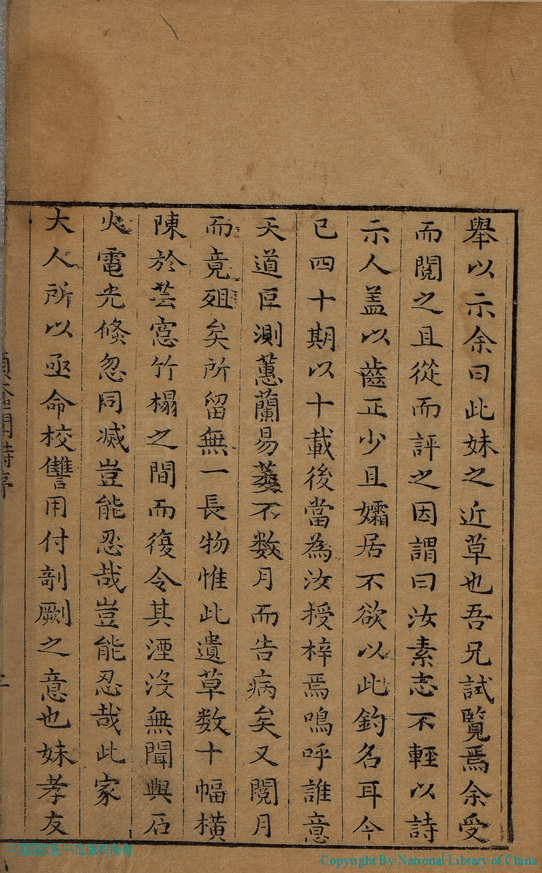 舉以示余曰此妹之近草也吾兄試覽焉余受
而閱之且從而評之因謂曰汝素志不輕以詩
示人盖以齒正少且孀居不欲以此釣名耳今
已四十期以十載後當為汝授梓焉嗚呼誰意
天道叵測蕙蘭易萎不数月而告病矣又閱月
而竟殂矣所留無一長物惟此遺草数十幅橫
陳於芸窓竹榻之間而復令其湮没無聞與石
火電光倐忽同滅豈能忍哉豈能忍哉此家
大人所以亟命校讐用付剞劂之意也妹孝友
Copyright By National Library of China